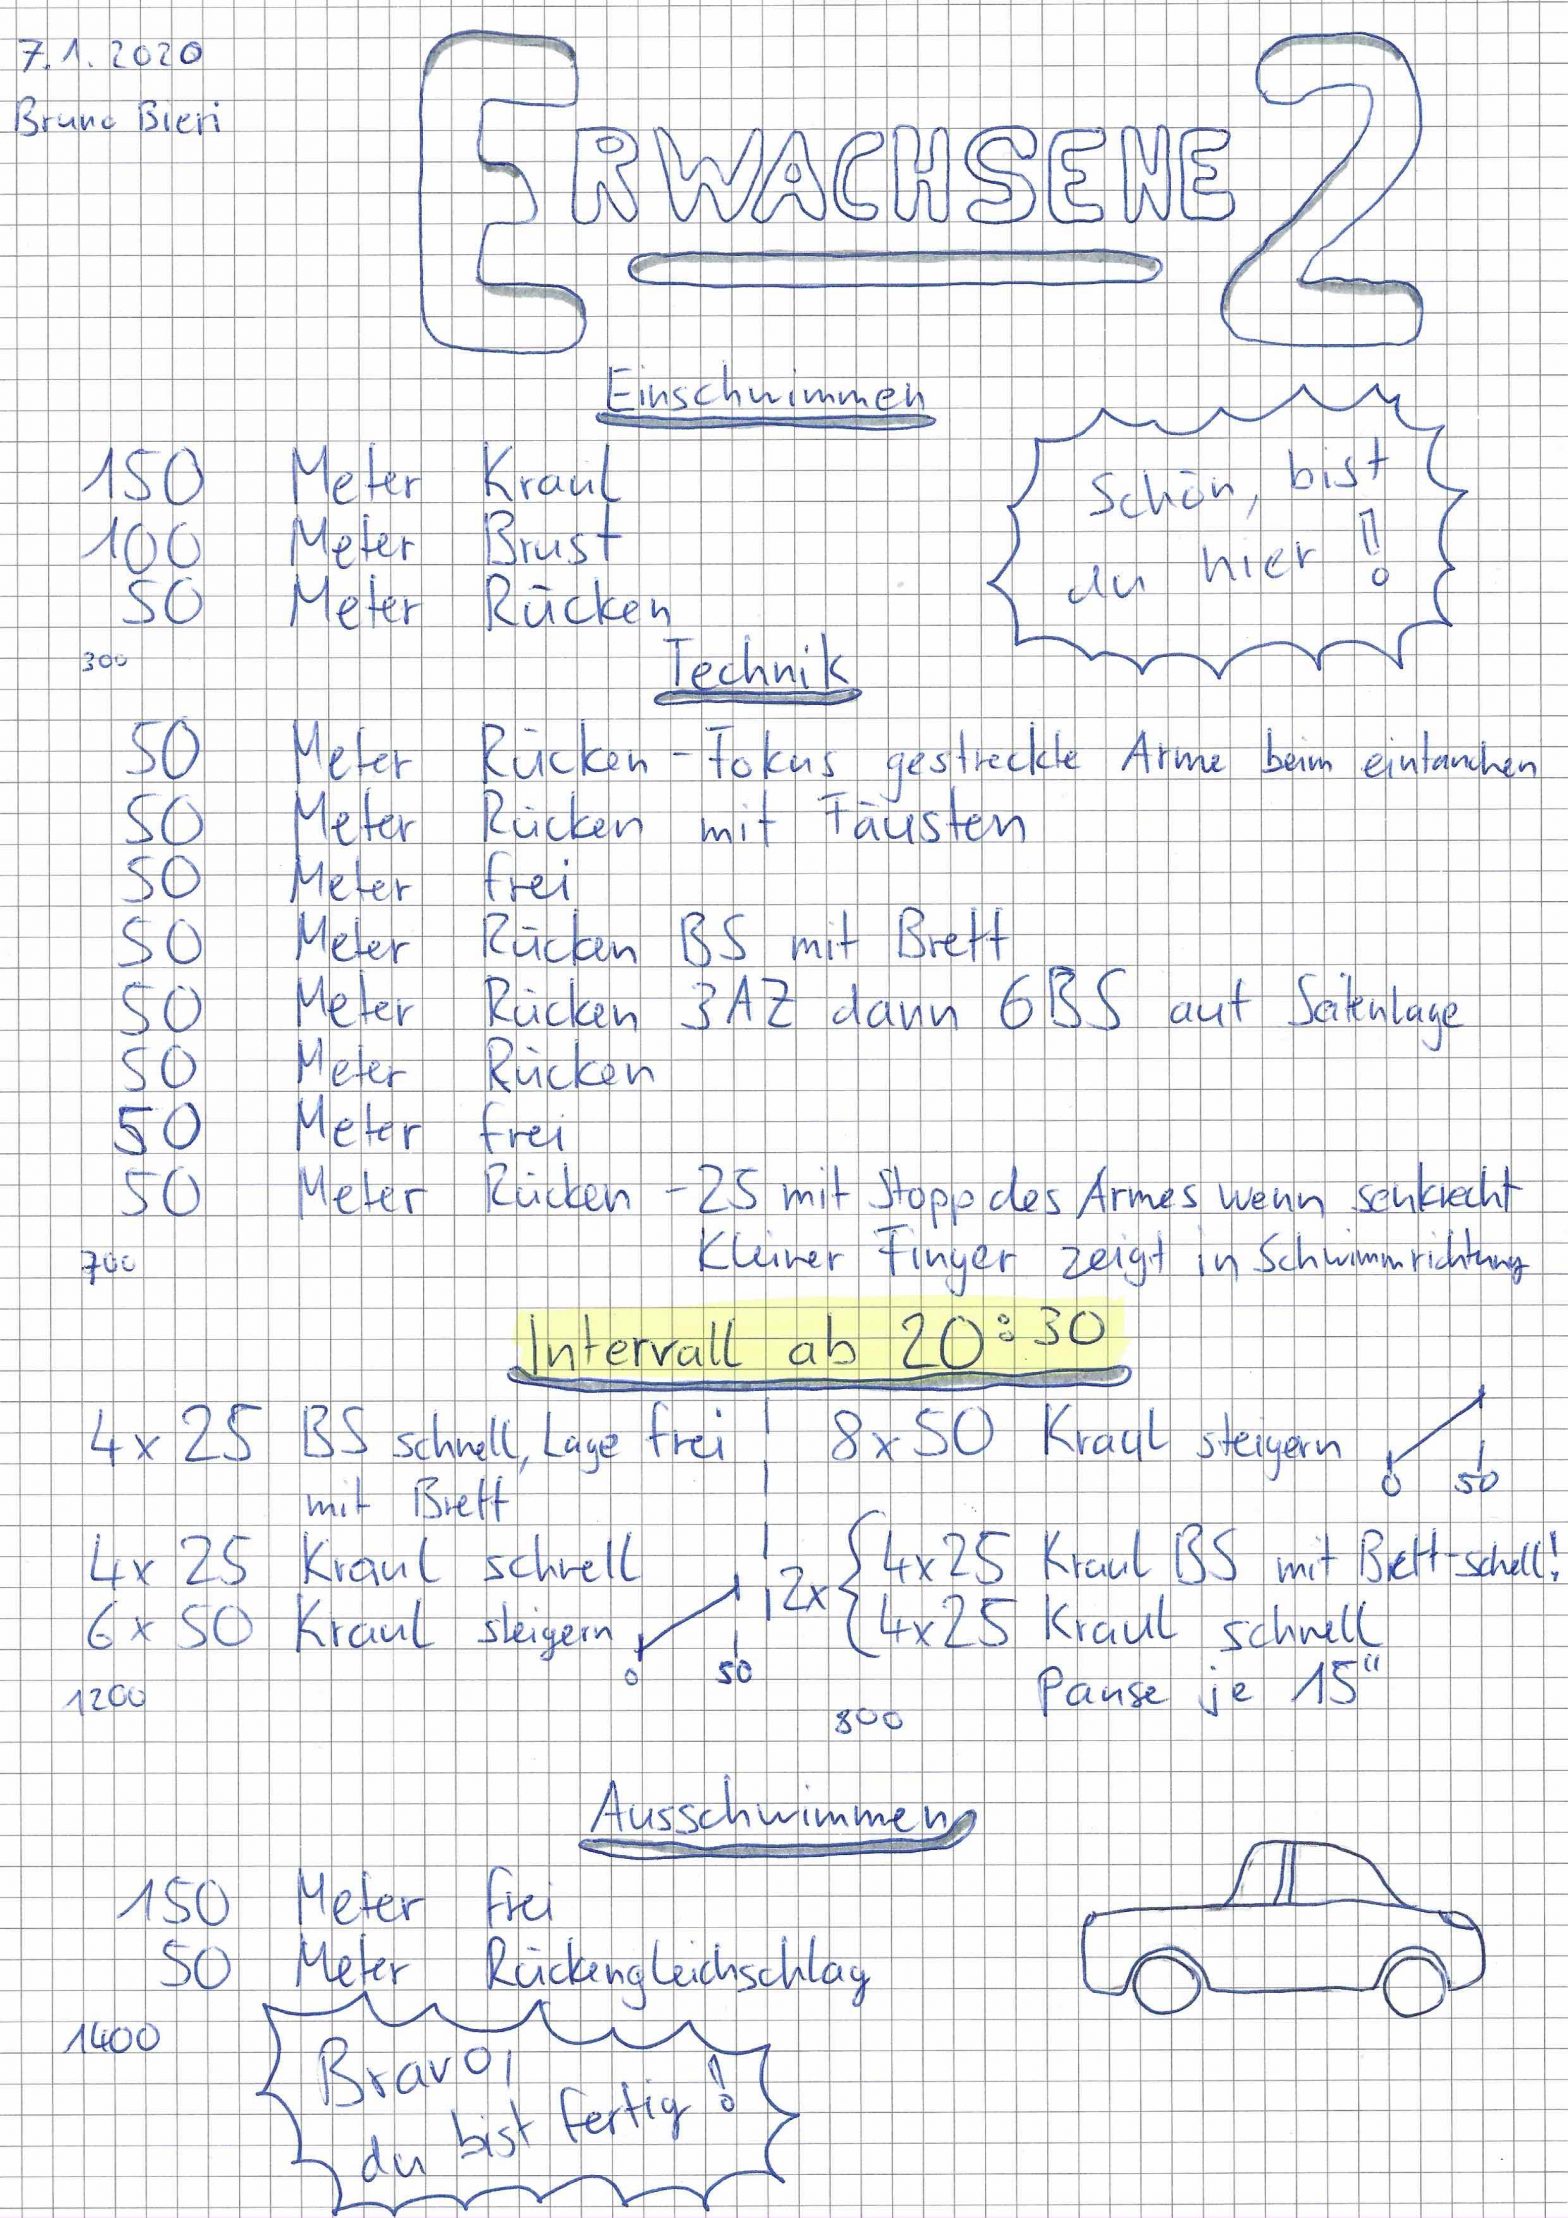 7.1.2020
Bruno Bieri
ERWACHSENE 2
Einschwimmen
150 Meter Kraul
100 Meter Brust
50 Meter Rücken
300
Schön, bist
du hier !!
Technik
50 Meter Rücken - Fokus gestreckte Arme beim eintauchen
50 Meter Rücken mit Fäusten
50 Meter frei
50 Meter Rücken BS mit Brett
50 Meter Rücken 3AZ dann 6BS auf Seitenlage
50 Meter Rücken
50 Meter frei
50 Meter Rücken - 25 mit Stopp des Armes wenn senkrecht
Kleiner Finger zeigt in Schwimmrichtung
700
Intervall ab 20:30
4x25 BS schnell, Lage frei
mit Brett
4x25 Kraul schnell
6x50 Kraul steigern
0 50
1200
8x50 Kraul steigern
0 50
2x { 4x25 Kraul BS mit Brett-schell!
4x25 Kraul schnell
Pause je 15"
800
Ausschwimmen
150 Meter frei
50 Meter Rückengleichschlag
1400
Bravo,
du bist fertig!